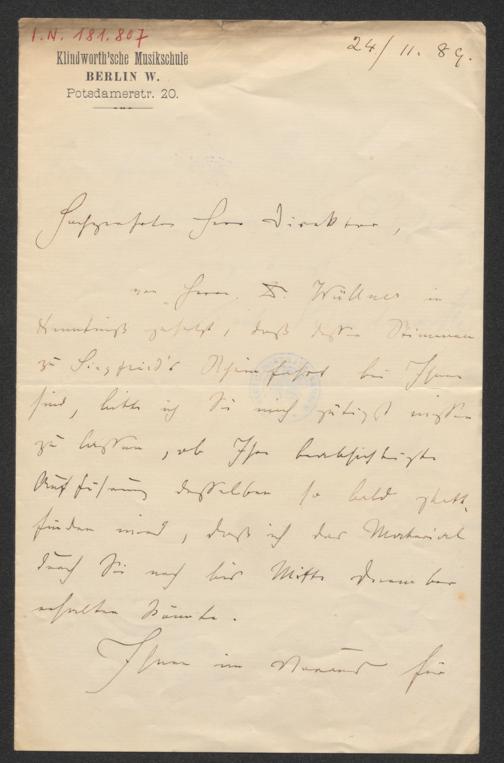 I.N. 181.807
24/11. 89.
Klindworth'sche Musikschule
BERLIN W.
Potsdamerstr. 20.
Hochgeehrter Herr Direktor,
von Herrn D. Wüllner in
Kenntniß gesetzt, daß die Stimmen
zu Siegfried's Rheinfahrt bei Ihnen
sind, bitte ich Sie mich gütigst wissen
zu lassen, ob Ihre beabsichtigte
Aufführung desselben so bald statt-
finden wird, daß ich das Material
durch Sie noch bis Mitte Dezember
erhalten könnte.
Ihnen im Voraus für